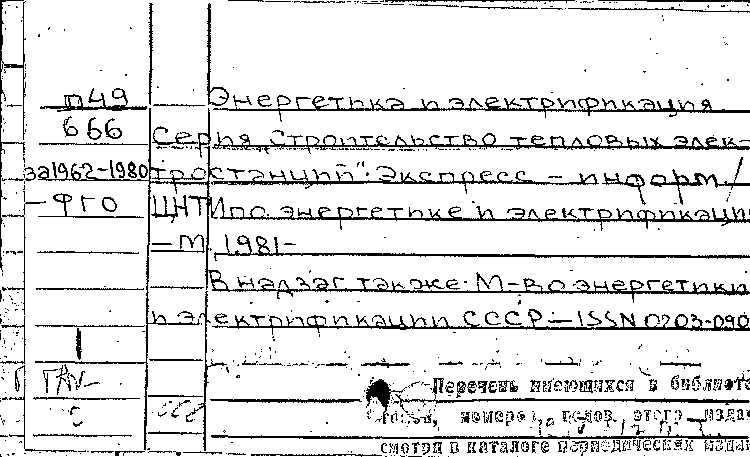 п49
666
за1962-1980
-ФГО
Энергетика и электрификация
Серия "Строительство тепловых элек-
тростанций": Экспресс-информ/
ЦНТИпо энергетике и электрификации
-М, 1981-
В надзаг также: М-во энергетики
и электрификации СССР.-ISSN 0203-090
Перечень имеющихся в библиоте
номеров, годов этого изда
смотри в каталоге периодических издан